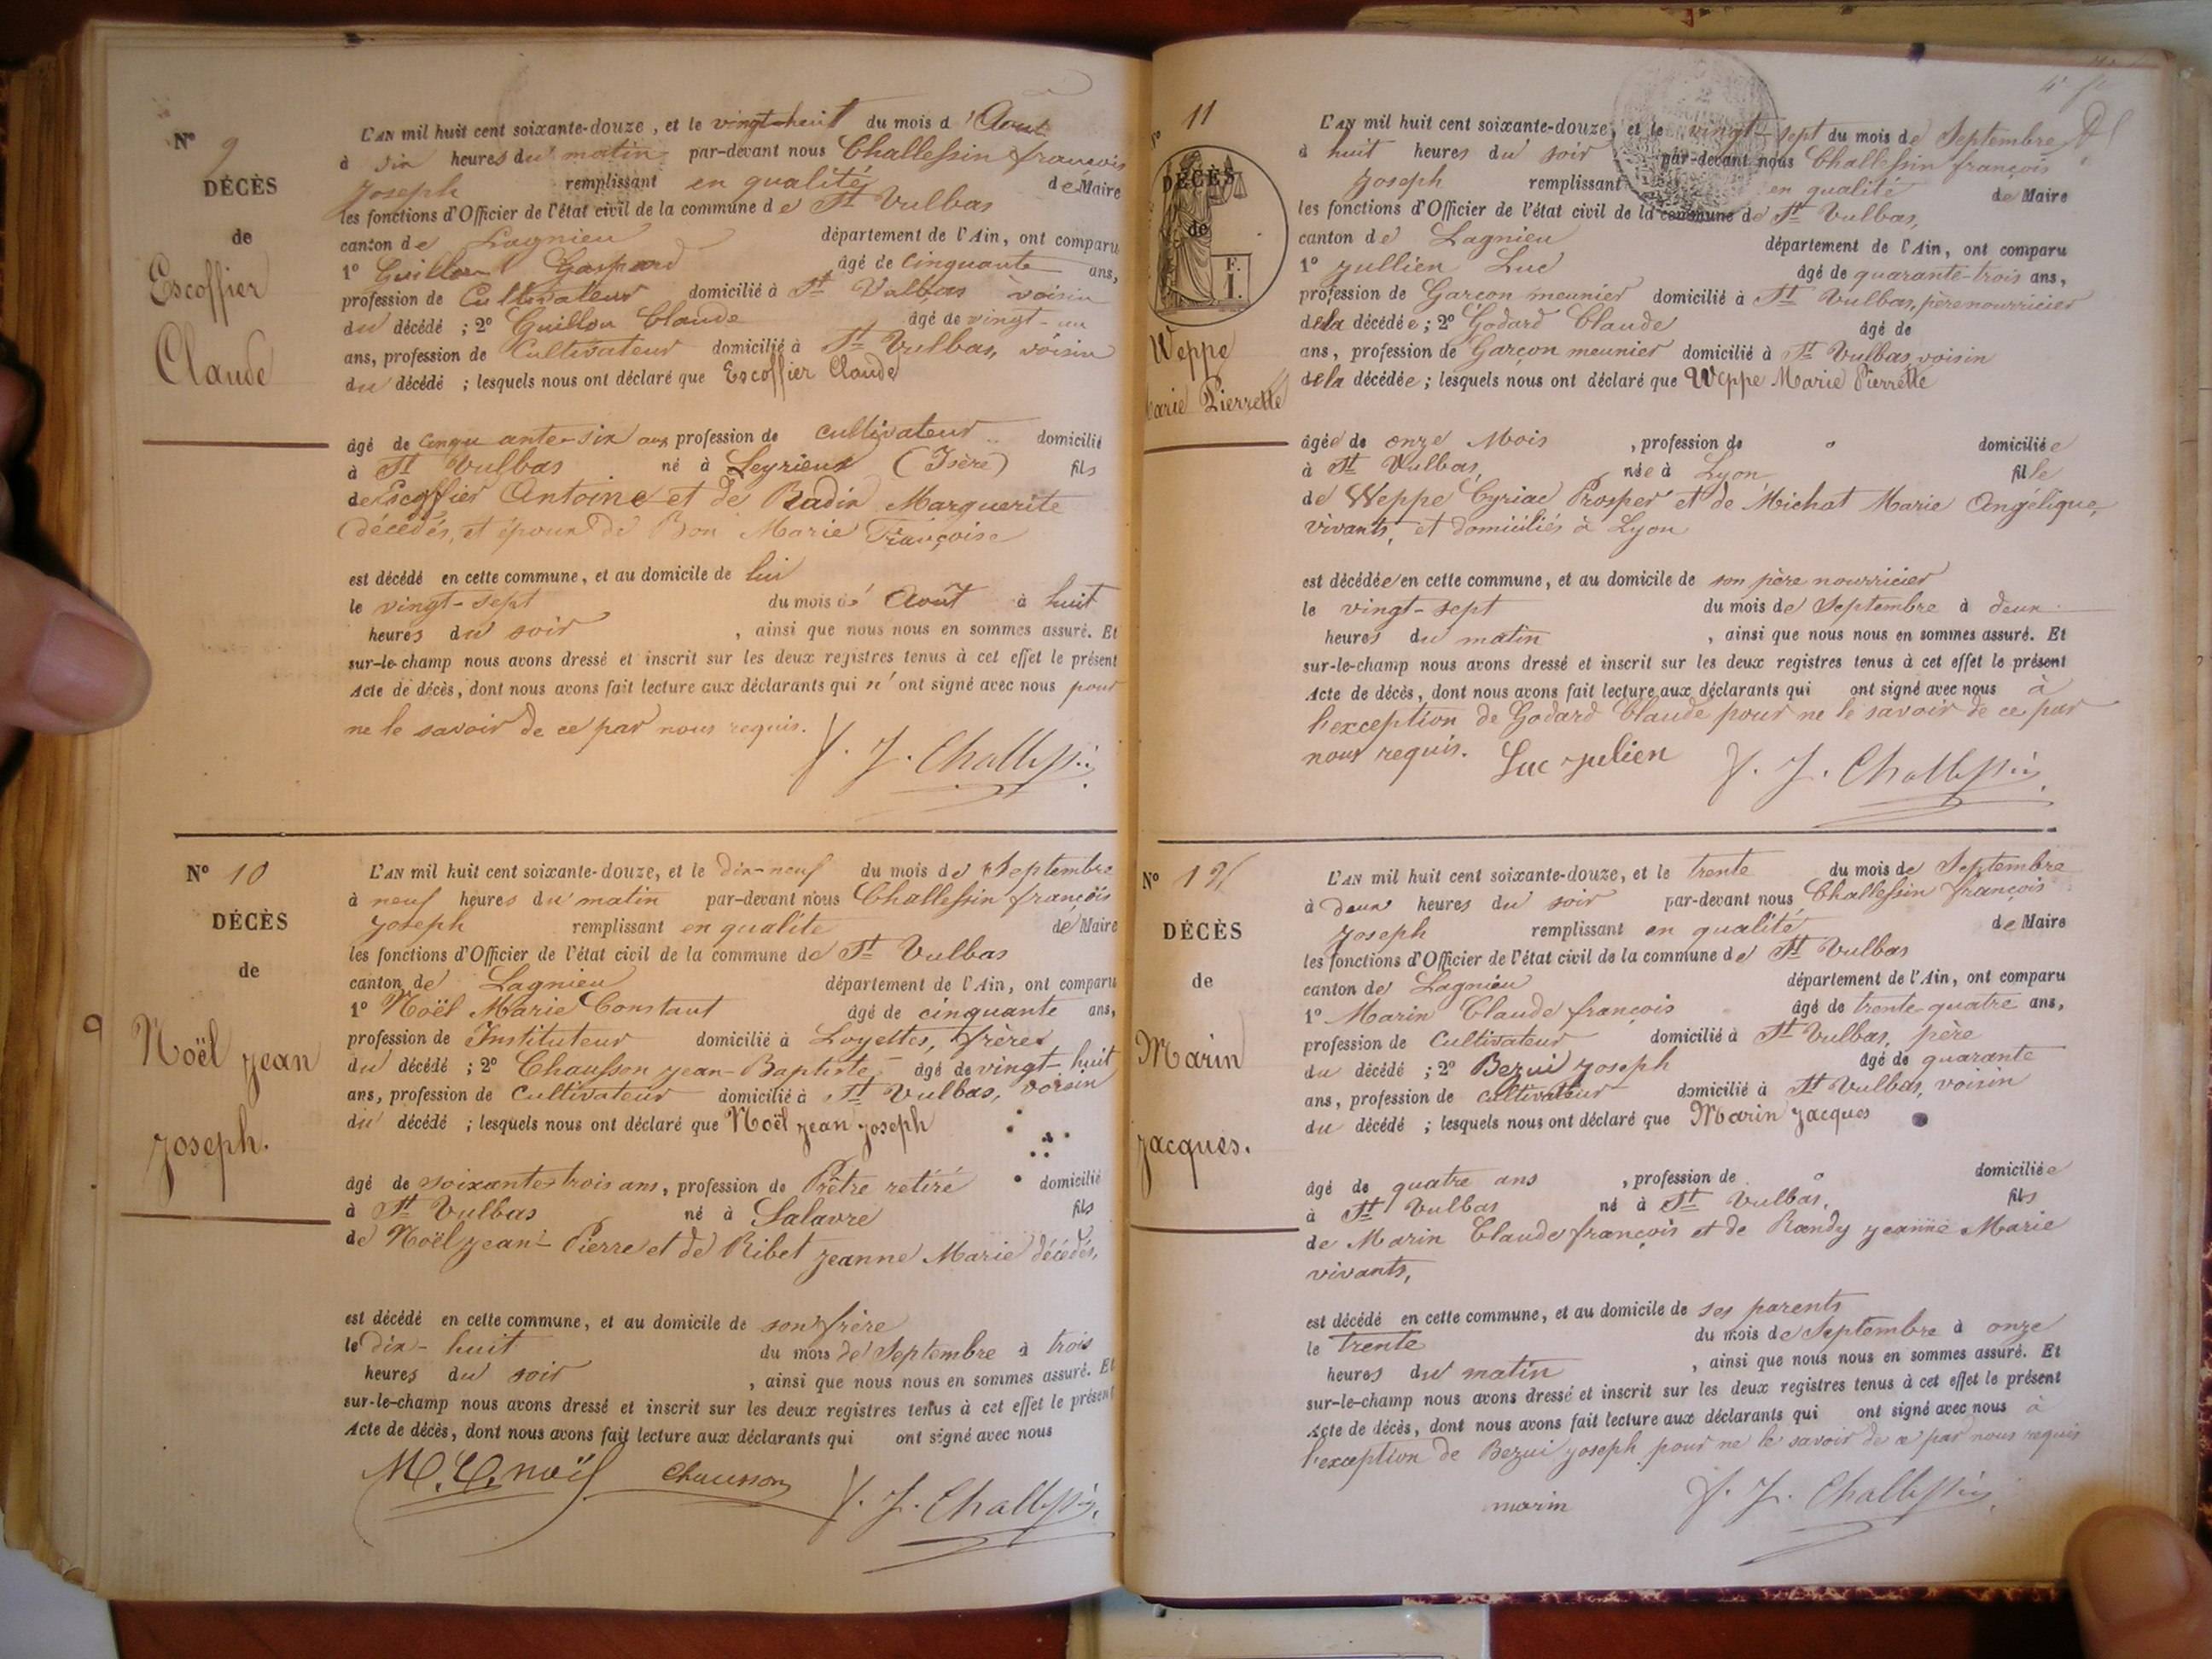 Nº 9
DÉCÈS
de
Escoffier
Claude
L'AN mil huit cent soixante-douze, et le vingt-huit du mois d'Août
à six heures du matin par-devant nous Challessin françois
joseph remplissant en qualité de Maire
les fonctions d'Officier de l'état civil de la commune de St Vulbas
canton de Lagnieu département de l'Ain, ont comparu
1º Guillon Gaspard âgé de cinquante ans,
profession de Cultivateur domicilié à St Vulbas voisin
du décédé ; 2º Guillon Claude âgé de vingt-un
ans, profession de Cultivateur domicilié à St Vulbas, voisin
du décédé ; lesquels nous ont déclaré que Escoffier Claude
âgé de cinquante-six ans profession de cultivateur domicilié
à St Vulbas né à Leyrieux (Isère) fils
de Escoffier Antoine et de Radix Marguerite
décédés, et époux de Bon Marie Françoise
est décédé en cette commune, et au domicile de lui
le vingt-sept du mois d' Août à huit
heures du soir , ainsi que nous nous en sommes assuré. Et
sur-le-champ nous avons dressé et inscrit sur les deux registres tenus à cet effet le présent
Acte de décès, dont nous avons fait lecture aux déclarants qui n'ont signé avec nous pour
ne le savoir de ce par nous requis.
f. J. Challessin
Nº 10
DÉCÈS
de
Noël jean
joseph.
L'AN mil huit cent soixante-douze, et le dix-neuf du mois de Septembre
à neuf heures du matin par-devant nous Challessin françois
joseph remplissant en qualité de Maire
les fonctions d'Officier de l'état civil de la commune de St Vulbas
canton de Lagnieu département de l'Ain, ont comparu
1º Noël Marie Constant âgé de cinquante ans,
profession de Instituteur domicilié à Loyettes, frère
du décédé ; 2º Chausson jean-Baptiste âgé de vingt-huit
ans, profession de Cultivateur domicilié à St Vulbas, voisin
du décédé ; lesquels nous ont déclaré que Noël jean joseph
âgé de soixante-trois ans, profession de Prêtre retiré domicilié
à St Vulbas né à Salavre fils
de Noël jean-Pierre et de Ribet jeanne Marie décédés,
est décédé en cette commune, et au domicile de son frère
le dix-huit du mois de Septembre à trois
heures du soir , ainsi que nous nous en sommes assuré. Et
sur-le-champ nous avons dressé et inscrit sur les deux registres tenus à cet effet le présent
Acte de décès, dont nous avons fait lecture aux déclarants qui ont signé avec nous
M. C. noël Chausson f. J. Challessin
Nº 11
DÉCÈS
de
F.
I.
Weppe
Marie Pierrette
L'AN mil huit cent soixante-douze, et le vingt-sept du mois de Septembre
à huit heures du soir par-devant nous Challessin françois
joseph remplissant en qualité de Maire
les fonctions d'Officier de l'état civil de la commune de St Vulbas,
canton de Lagnieu département de l'Ain, ont comparu
1º jullien Luc âgé de quarante-trois ans,
profession de Garçon meunier domicilié à St Vulbas, père nourricier
de la décédée ; 2º Godard Claude âgé de
ans, profession de Garçon meunier domicilié à St Vulbas, voisin
de la décédée ; lesquels nous ont déclaré que Weppe Marie Pierrette
âgée de onze Mois , profession de domiciliée
à St Vulbas, née à Lyon fille
de Weppe Cyriac Prosper et de Michat Marie Angélique,
vivants, et domiciliés à Lyon
est décédée en cette commune, et au domicile de son père nourricier
le vingt-sept du mois de Septembre à deux
heures du matin , ainsi que nous nous en sommes assuré. Et
sur-le-champ nous avons dressé et inscrit sur les deux registres tenus à cet effet le présent
Acte de décès, dont nous avons fait lecture aux déclarants qui ont signé avec nous à
l'exception de Godard Claude pour ne le savoir de ce par
nous requis. Luc julien f. J. Challessin
Nº 12
DÉCÈS
de
Marin
jacques.
L'AN mil huit cent soixante-douze, et le trente du mois de Septembre
à deux heures du soir par-devant nous Challessin françois
joseph remplissant en qualité de Maire
les fonctions d'Officier de l'état civil de la commune de St Vulbas
canton de Lagnieu département de l'Ain, ont comparu
1º Marin Claude françois âgé de trente quatre ans,
profession de Cultivateur domicilié à St Vulbas, père
du décédé ; 2º Bezui joseph âgé de quarante
ans, profession de cultivateur domicilié à St Vulbas, voisin
du décédé ; lesquels nous ont déclaré que Marin jacques
âgé de quatre ans , profession de domiciliée
à St Vulbas né à St Vulbas, fils
de Marin Claude françois et de Randy jeanne Marie
vivants,
est décédé en cette commune, et au domicile de ses parents
le trente du mois de Septembre à onze
heures du matin , ainsi que nous nous en sommes assuré. Et
sur-le-champ nous avons dressé et inscrit sur les deux registres tenus à cet effet le présent
Acte de décès, dont nous avons fait lecture aux déclarants qui ont signé avec nous à
l'exception de Bezui joseph pour ne le savoir de ce par nous requis
marin f. J. Challessin